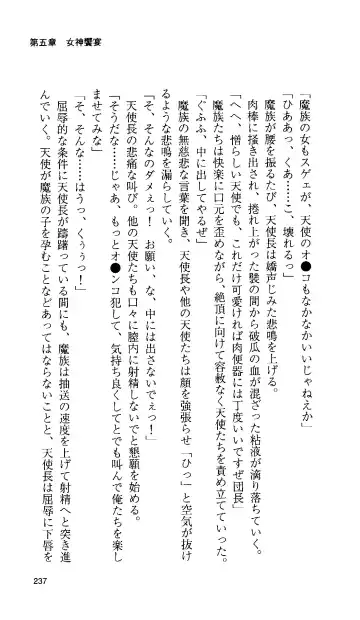 第五章　女神饗宴
「魔族の女もスゲェが、天使のオ●コもなかなかいいじゃねえか」
「ひああっ、くあ……こ、壊れるっ」
魔族が腰を振るたび、天使長は嬌声じみた悲鳴を上げる。
肉棒に掻き出され、捲れ上がった襞の間から破瓜の血が混ざった粘液が滴り落ちていく。
「へへ、憎らしい天使でも、これだけ可愛ければ肉便器には丁度いいですぜ団長」
魔族たちは快楽に口元を歪めながら、絶頂に向けて容赦なく天使たちを責め立てていった。
「ぐふふ、中に出してやるぜ」
魔族の無慈悲な言葉を聞き、天使長や他の天使たちは顔を強張らせ「ひっ」と空気が抜け
るような悲鳴を漏らしていく。
「そ、そんなのダメぇっ！　お願い、な、中には出さないでぇっ！」
天使長の悲痛な叫び。他の天使たちも口々に膣内に射精しないでと懇願を始める。
「そうだな……じゃあ、もっとオ●ンコ犯して、気持ち良くしてとでも叫んで俺たちを楽し
ませてみな」
「そ、そんな……はうっ、くぅぅっ！」
屈辱的な条件に天使長が躊躇っている間にも、魔族は抽送の速度を上げて射精へと突き進
んでいく。天使が魔族の子を孕むことなどあってはならないことと、天使長は屈辱に下唇を
237